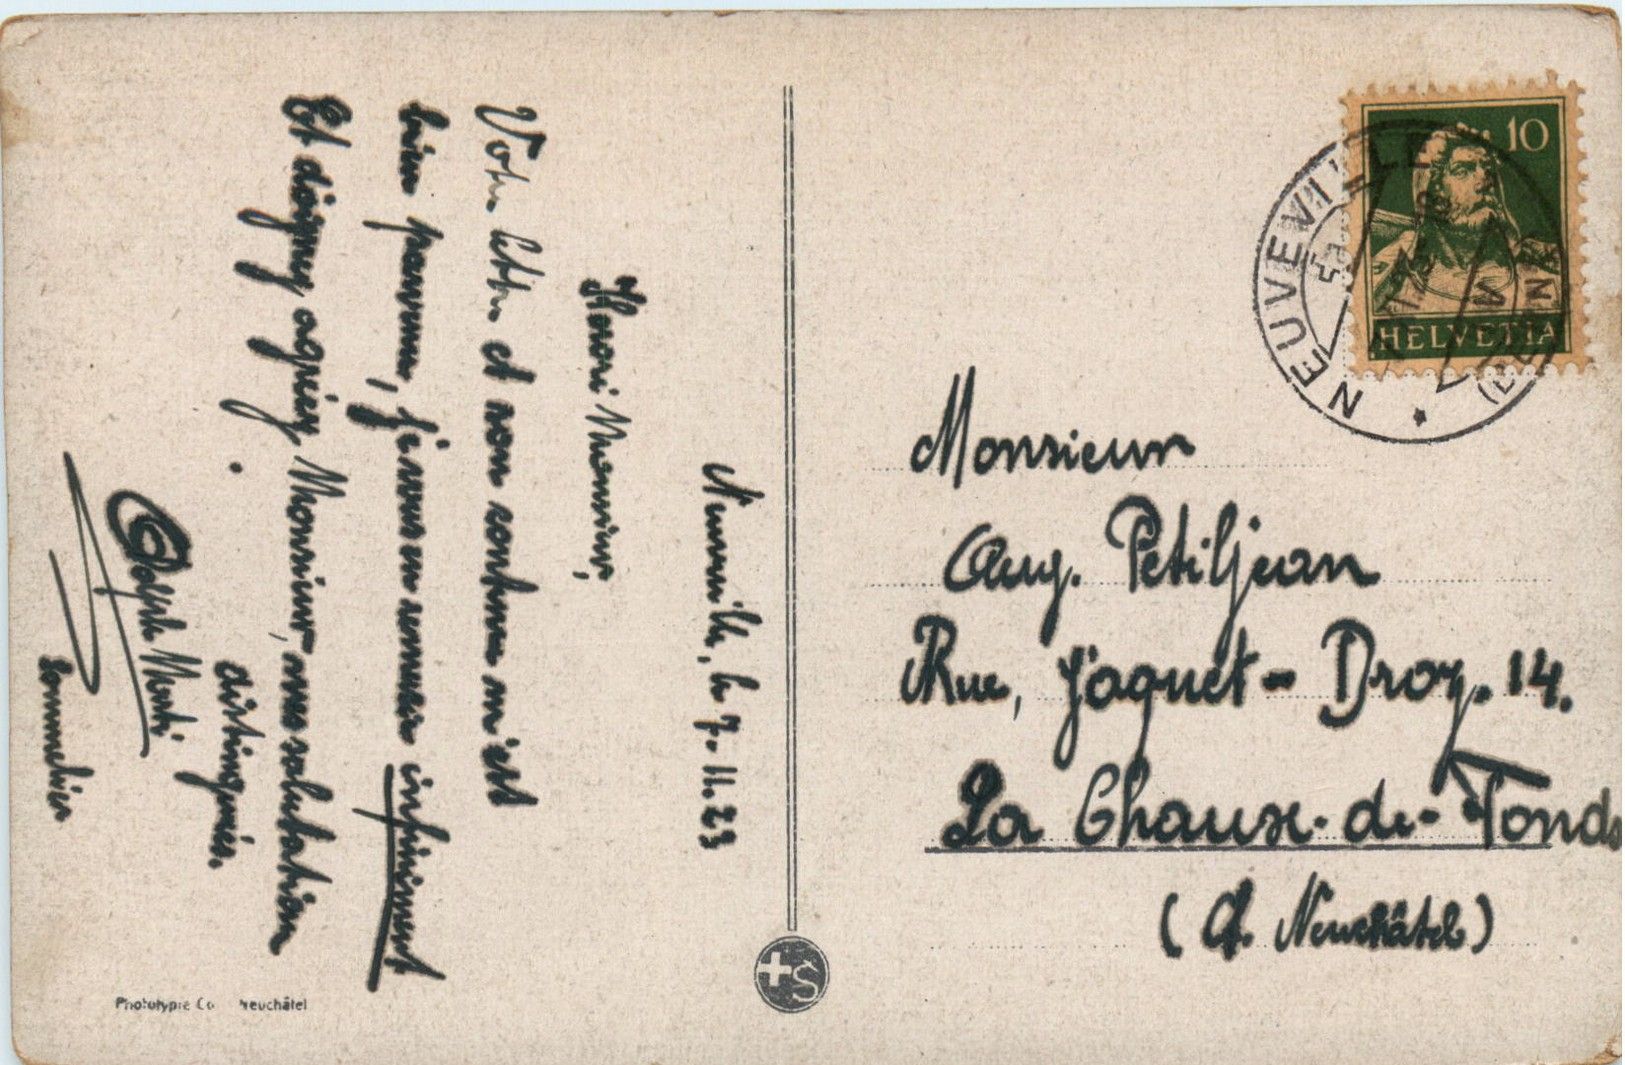 Neuveville, le 7. 11. 23
Honoré Monsieur,
Votre lettre et son contenu m'est
bien parvenu, je vous en remercie infiniment
Et daignez agréez, Monsieur, mes salutation
distinguées.
Adolph Monti
Sommelier
Phototypie Co Neuchâtel
S
10
HELVETIA
NEUVEVILLE
Monsieur
Aug. Petitjean
Rue, Jaquet-Droz. 14.
La Chaux-de-Fonds
(Ct. Neuchâtel)